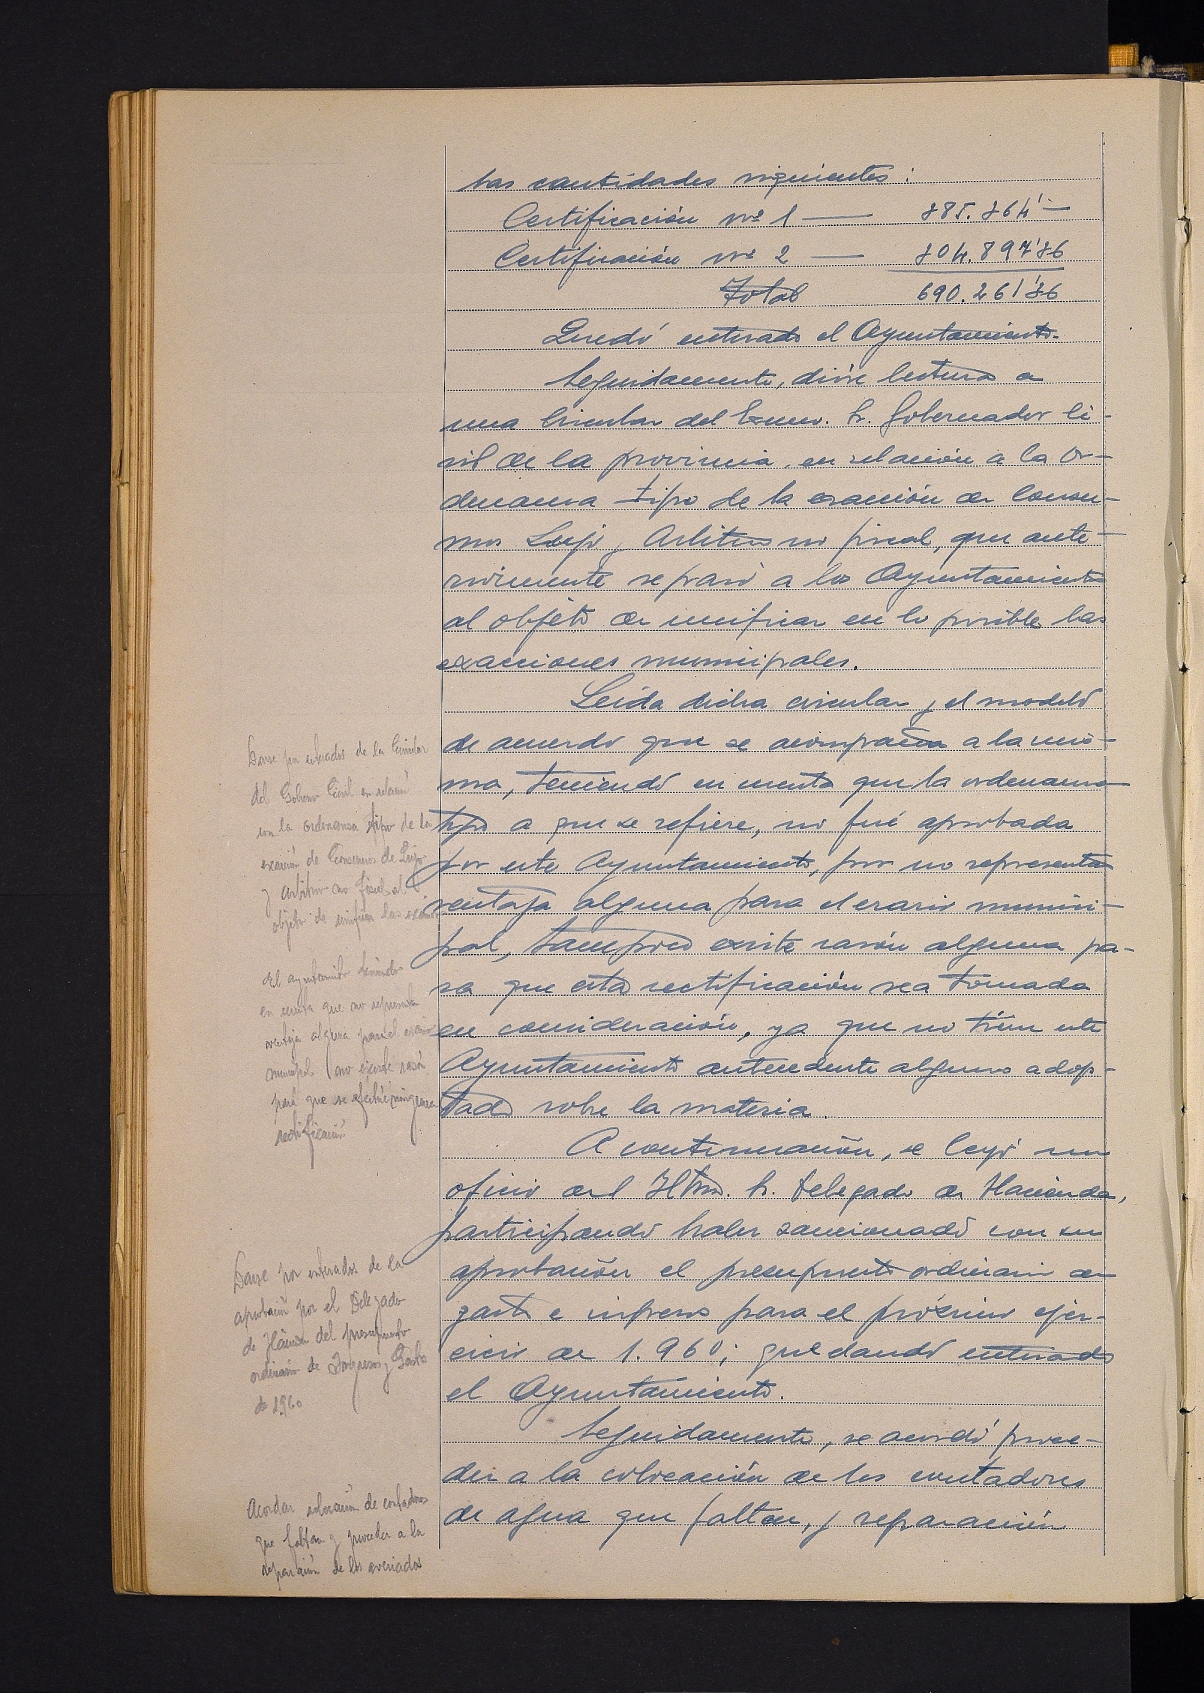 las cantidades siguientes:
Certificación nº 1 — 385.364'—
Certificación nº 2 — 304.897'36
Total 690.261'36
Quedó enterado el Ayuntamiento.
Seguidamente, dióse lectura a
una Circular del Excmo. Sr. Gobernador Ci-
vil de la provincia, en relación a la Or-
denanza tipo de la exacción de Consu-
mos Lujo y Arbitrio no fiscal, que ante-
riormente se pasó a los Ayuntamientos
al objeto de unificar en lo posible las
exacciones municipales.
Leida dicha circular y el modelo
de acuerdo que se acompaña a la mis-
ma, teniendo en cuenta que la ordenanza
tipo a que se refiere, no fué aprobada
por este Ayuntamiento, por no representar
ventaja alguna para el erario munici-
pal, tampoco existe razón alguna pa-
ra que esta rectificación sea tomada
en consideración, ya que no tiene este
Ayuntamiento antecedente alguno adop-
tado sobre la materia.
A continuación, se leyó un
oficio del Iltmo. Sr. Delegado de Hacienda,
participando haber sancionado con su
aprobación el presupuesto ordinario de
gastos e ingresos para el próximo ejer-
cicio de 1.960; quedando enterado
el Ayuntamiento.
Seguidamente, se acordó proce-
der a la colocación de los contadores
de agua que faltan, y reparación
Darse por enterados de la Circular
del Gobierno Civil en relación
con la ordenanza tipo de la
exacción de Consumos de Lujo
y arbitrio no fiscal al
objeto de unificar las
El ayuntamiento teniendo
en cuenta que no representa
ventaja alguna para el erario
municipal no existe razón
para que se efectúe ninguna
rectificación
Darse por enterados de la
aprobación por el Delegado
de Hacienda del presupuesto
ordinario de Ingresos y Gastos
de 1960
Acordar colocación de contadores
que faltan y proceder a la
reparación de los averiados